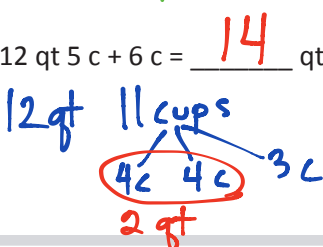 12 qt 5 c + 6 c = 14 qt
12qt 11 cups
4c 4c 3c
2 qt